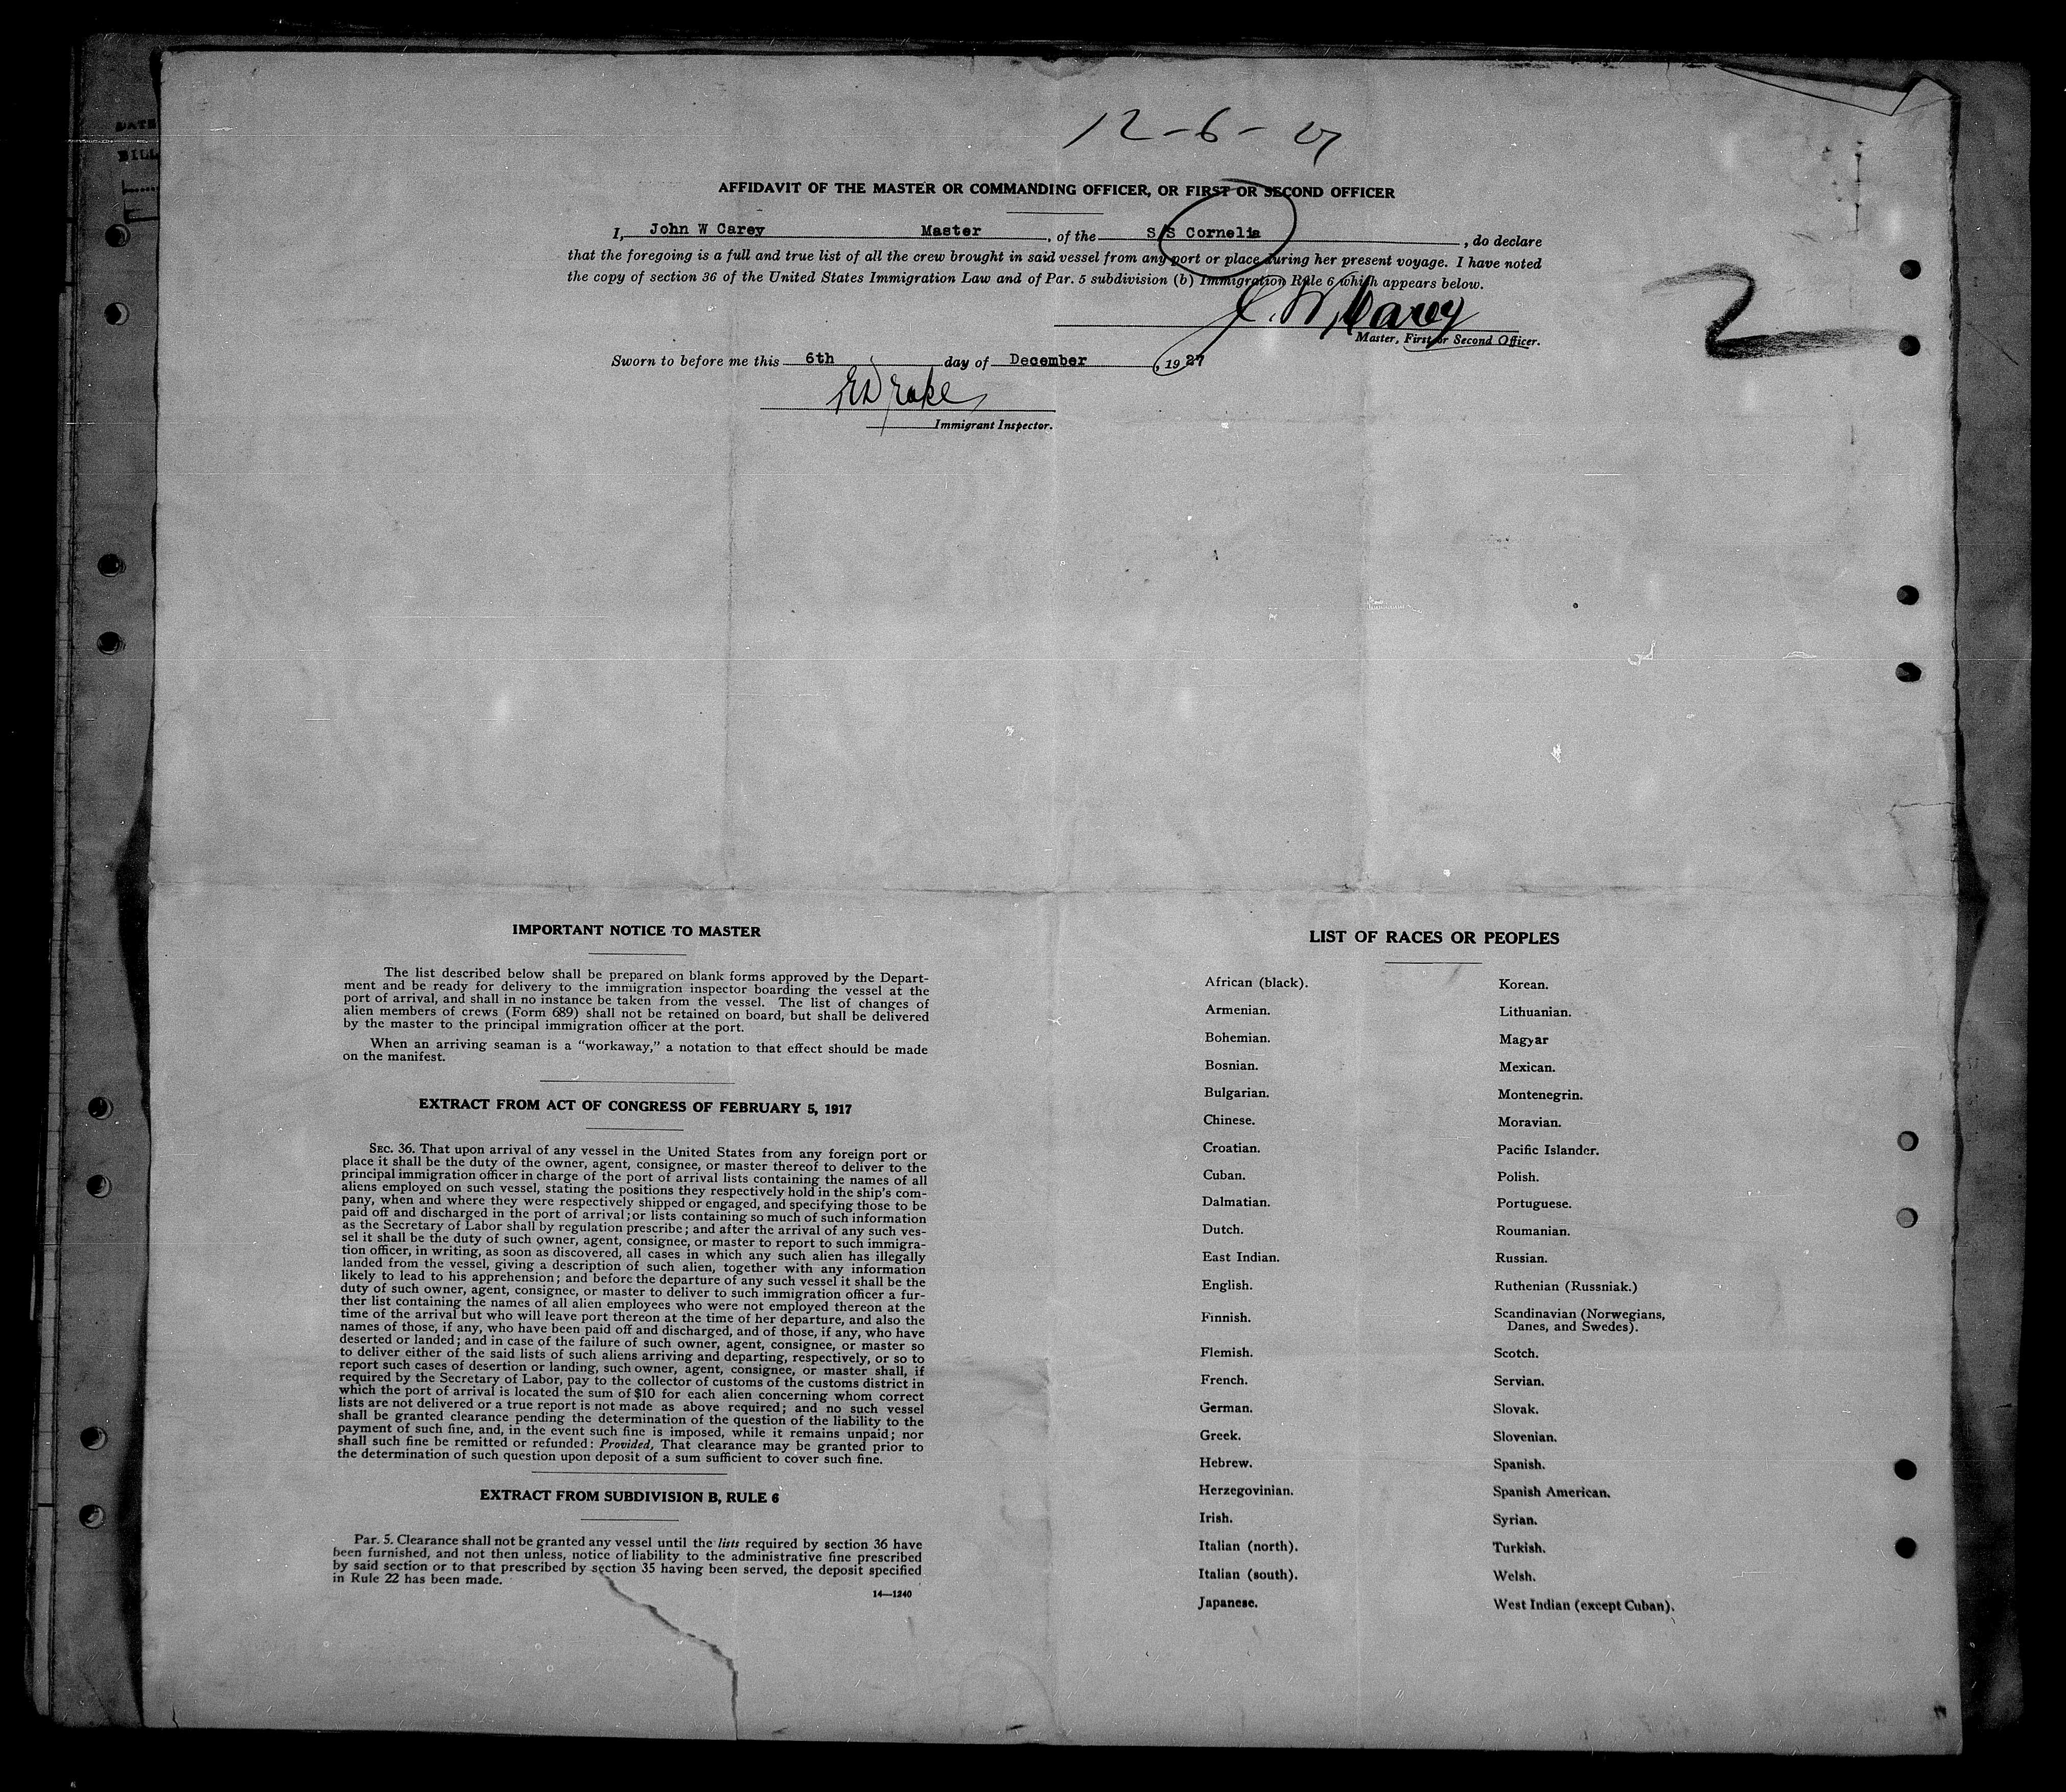 DATE
BILL
12-6-27
AFFIDAVIT OF THE MASTER OR COMMANDING OFFICER, OR FIRST OR SECOND OFFICER
I, John W Carey Master, of the S/S Cornelia, do declare
that the foregoing is a full and true list of all the crew brought in said vessel from any port or place during her present voyage. I have noted
the copy of section 36 of the United States Immigration Law and of Par. 5 subdivision (b) Immigration Rule 6 which appears below.
J. W. Carey
Master, First or Second Officer.
2
Sworn to before me this 6th day of December, 1927
Drake
Immigrant Inspector.
IMPORTANT NOTICE TO MASTER
The list described below shall be prepared on blank forms approved by the Depart-
ment and be ready for delivery to the immigration inspector boarding the vessel at the
port of arrival, and shall in no instance be taken from the vessel. The list of changes of
alien members of crews (Form 689) shall not be retained on board, but shall be delivered
by the master to the principal immigration officer at the port.
When an arriving seaman is a "workaway," a notation to that effect should be made
on the manifest.
EXTRACT FROM ACT OF CONGRESS OF FEBRUARY 5, 1917
SEC. 36. That upon arrival of any vessel in the United States from any foreign port or
place it shall be the duty of the owner, agent, consignee, or master thereof to deliver to the
principal immigration officer in charge of the port of arrival lists containing the names of all
aliens employed on such vessel, stating the positions they respectively hold in the ship's com-
pany, when and where they were respectively shipped or engaged, and specifying those to be
paid off and discharged in the port of arrival; or lists containing so much of such information
as the Secretary of Labor shall by regulation prescribe; and after the arrival of any such ves-
sel it shall be the duty of such owner, agent, consignee, or master to report to such immigra-
tion officer, in writing, as soon as discovered, all cases in which any such alien has illegally
landed from the vessel, giving a description of such alien, together with any information
likely to lead to his apprehension; and before the departure of any such vessel it shall be the
duty of such owner, agent, consignee, or master to deliver to such immigration officer a fur-
ther list containing the names of all alien employees who were not employed thereon at the
time of the arrival but who will leave port thereon at the time of her departure, and also the
names of those, if any, who have been paid off and discharged, and of those, if any, who have
deserted or landed; and in case of the failure of such owner, agent, consignee, or master so
to deliver either of the said lists of such aliens arriving and departing, respectively, or so to
report such cases of desertion or landing, such owner, agent, consignee, or master shall, if
required by the Secretary of Labor, pay to the collector of customs of the customs district in
which the port of arrival is located the sum of $10 for each alien concerning whom correct
lists are not delivered or a true report is not made as above required; and no such vessel
shall be granted clearance pending the determination of the question of the liability to the
payment of such fine, and, in the event such fine is imposed, while it remains unpaid; nor
shall such fine be remitted or refunded: Provided, That clearance may be granted prior to
the determination of such question upon deposit of a sum sufficient to cover such fine.
EXTRACT FROM SUBDIVISION B, RULE 6
Par. 5. Clearance shall not be granted any vessel until the lists required by section 36 have
been furnished, and not then unless, notice of liability to the administrative fine prescribed
by said section or to that prescribed by section 35 having been served, the deposit specified
in Rule 22 has been made.
14—1240
LIST OF RACES OR PEOPLES
African (black).
Armenian.
Bohemian.
Bosnian.
Bulgarian.
Chinese.
Croatian.
Cuban.
Dalmatian.
Dutch.
East Indian.
English.
Finnish.
Flemish.
French.
German.
Greek.
Hebrew.
Herzegovinian.
Irish.
Italian (north).
Italian (south).
Japanese.
Korean.
Lithuanian.
Magyar
Mexican.
Montenegrin.
Moravian.
Pacific Islander.
Polish.
Portuguese.
Roumanian.
Russian.
Ruthenian (Russniak.)
Scandinavian (Norwegians,
Danes, and Swedes).
Scotch.
Servian.
Slovak.
Slovenian.
Spanish.
Spanish American.
Syrian.
Turkish.
Welsh.
West Indian (except Cuban).